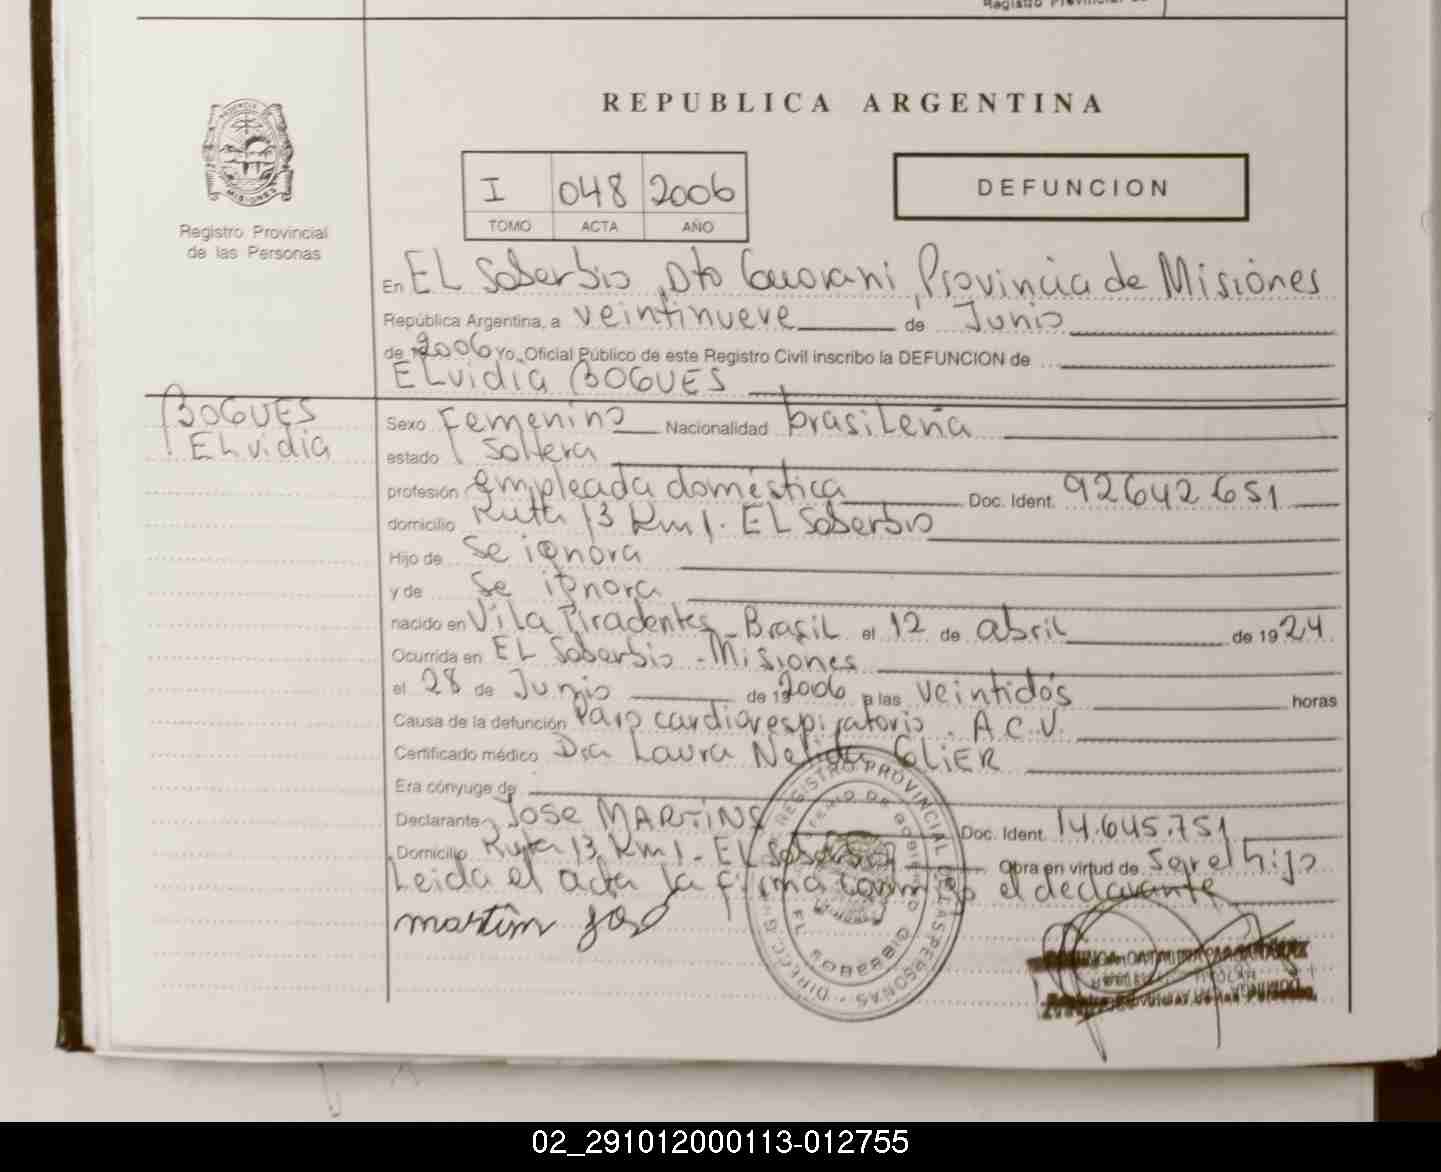 Registro Provincial de
REPUBLICA ARGENTINA
PROVINCIA
MISIONES
Registro Provincial
de las Personas
I 048 2006
TOMO ACTA AÑO
DEFUNCION
En EL Soberbio, Dto Guarani, Provincia de Misiones
República Argentina, a veintinueve de Junio
de 2006 Yo, Oficial Público de este Registro Civil inscribo la DEFUNCION de
ELvidia BOGUES
BOGUES
ELvidia
Sexo Femenino Nacionalidad brasileña
estado Soltera
profesión empleada doméstica Doc. Ident. 92642651
domicilio Ruta 13 Km 1. EL Soberbio
Hijo de Se ignora
y de Se ignora
nacido en Vila Tiradentes - Brasil el 12 de abril de 1924
Ocurrida en EL Soberbio - Misiones
el 28 de Junio de 2006 a las veintidós horas
Causa de la defunción Paro cardiorespiratorio. A.C.V.
Certificado médico Dra Laura Nelida GLiER
Era cónyuge de
Declarante Jose MARTINS Doc. Ident. 14.645.751
Domicilio Ruta 13 Km 1. EL Soberbio Obra en virtud de Ser el hijo
Leida el acta la firma conmigo el declarante
martim José
REGISTRO PROVINCIAL DE LAS PERSONAS
EL SOBERBIO
02_291012000113-012755